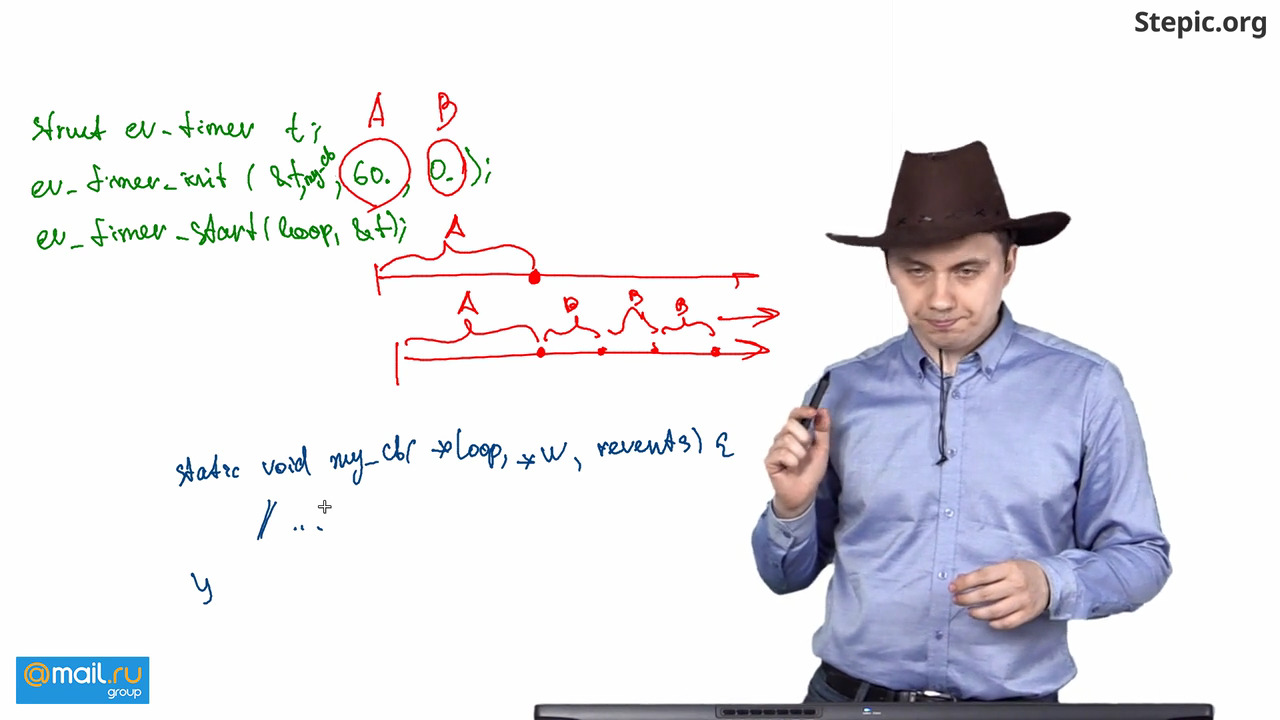 Stepic.org
A B
struct ev_timer t;
ev_timer_init (&t, my_cb, 60., 0.);
ev_timer_start(loop, &t);
A
A B B B
static void my_cb( *loop, *w, revents) {
// ...
}
@mail.ru
group